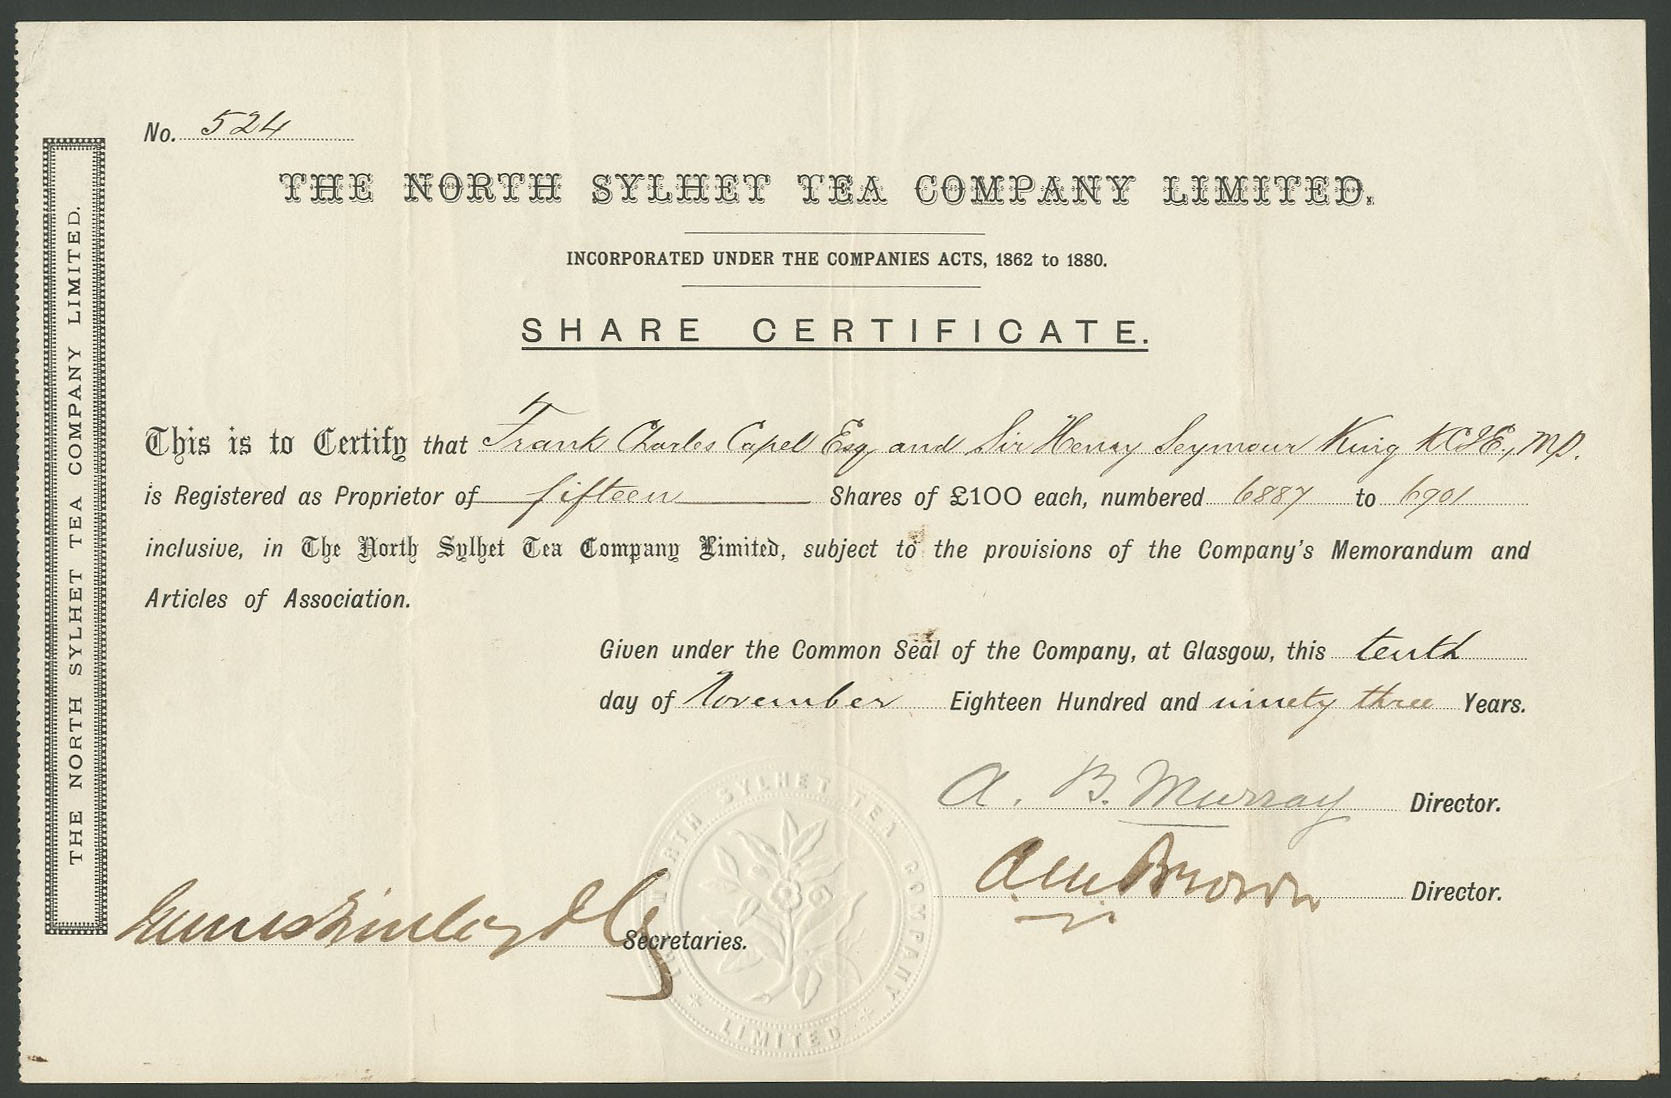 No. 524
THE NORTH SYLHET TEA COMPANY LIMITED.
INCORPORATED UNDER THE COMPANIES ACTS, 1862 to 1880.
SHARE CERTIFICATE.
This is to Certify that Frank Charles Capel Esq and Sir Henry Seymour King KCIE., M.P.
is Registered as Proprietor of fifteen Shares of £100 each, numbered 6887 to 6901
inclusive, in The North Sylhet Tea Company Limited, subject to the provisions of the Company's Memorandum and
Articles of Association.
Given under the Common Seal of the Company, at Glasgow, this tenth
day of November Eighteen Hundred and ninety three Years.
A. B. Murray Director.
A. M. Brown Director.
James Finlay & Co Secretaries.
THE NORTH SYLHET TEA COMPANY LIMITED.
THE NORTH SYLHET TEA COMPANY
LIMITED